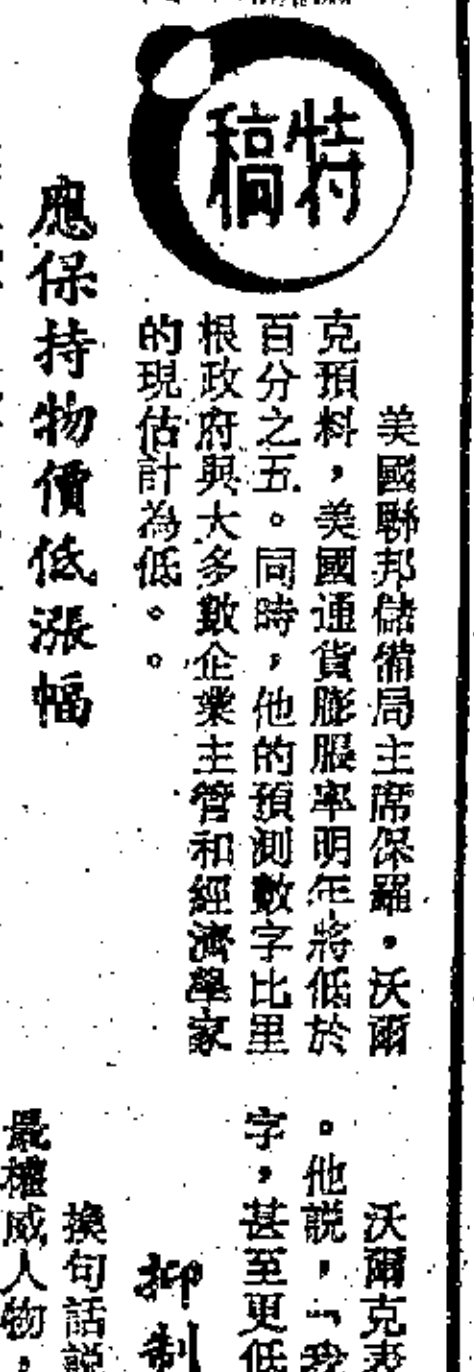 特稿
美國聯邦儲備局主席保羅・沃爾
克預料，美國通貨膨脹率明年將低於
百分之五。同時，他的預測數字比里
根政府與大多數企業主管和經濟學家
的現估計為低。。
應保持物價低漲幅
沃爾克表
。他説，「我
字，甚至更低
抑制
換句話説
最權威人物，